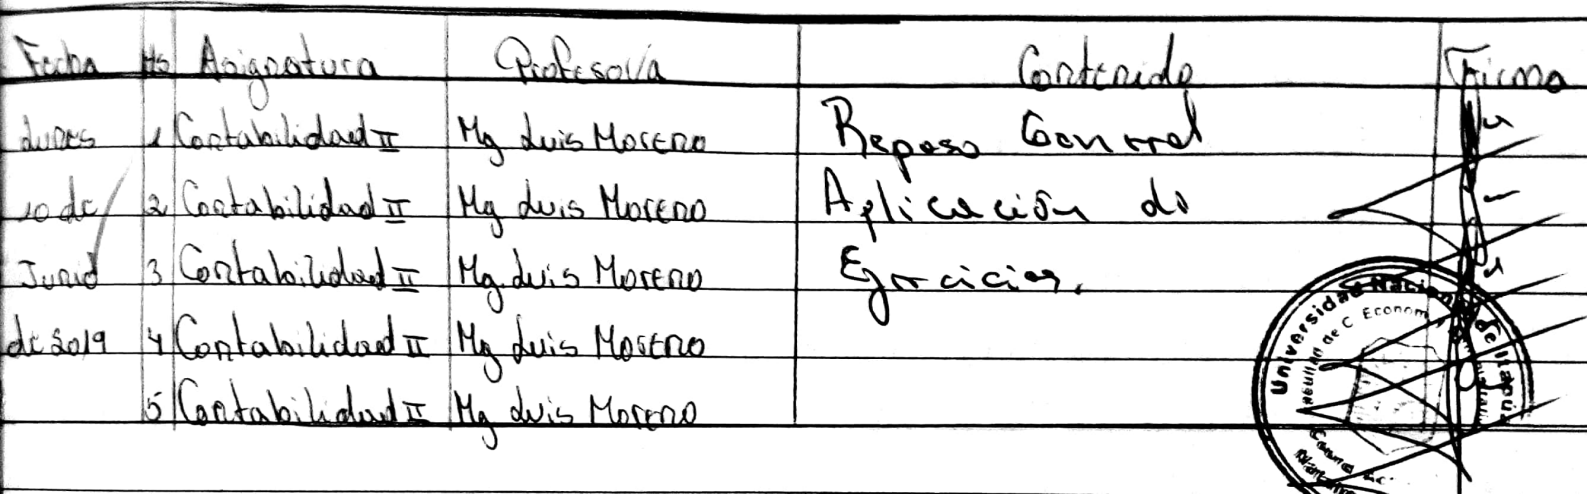 Fecha Hs Asignatura Profesor/a Contenido Firma
Lunes 1 Contabilidad II Mg Luis Moreno Repaso General
10 de 2 Contabilidad II Mg Luis Moreno Aplicación de
Junio 3 Contabilidad II Mg. Luis Moreno Ejercicios.
de 2019 4 Contabilidad II Mg Luis Moreno
5 Contabilidad II Mg Luis Moreno
Universidad Nacional de Itapúa
de C Econom